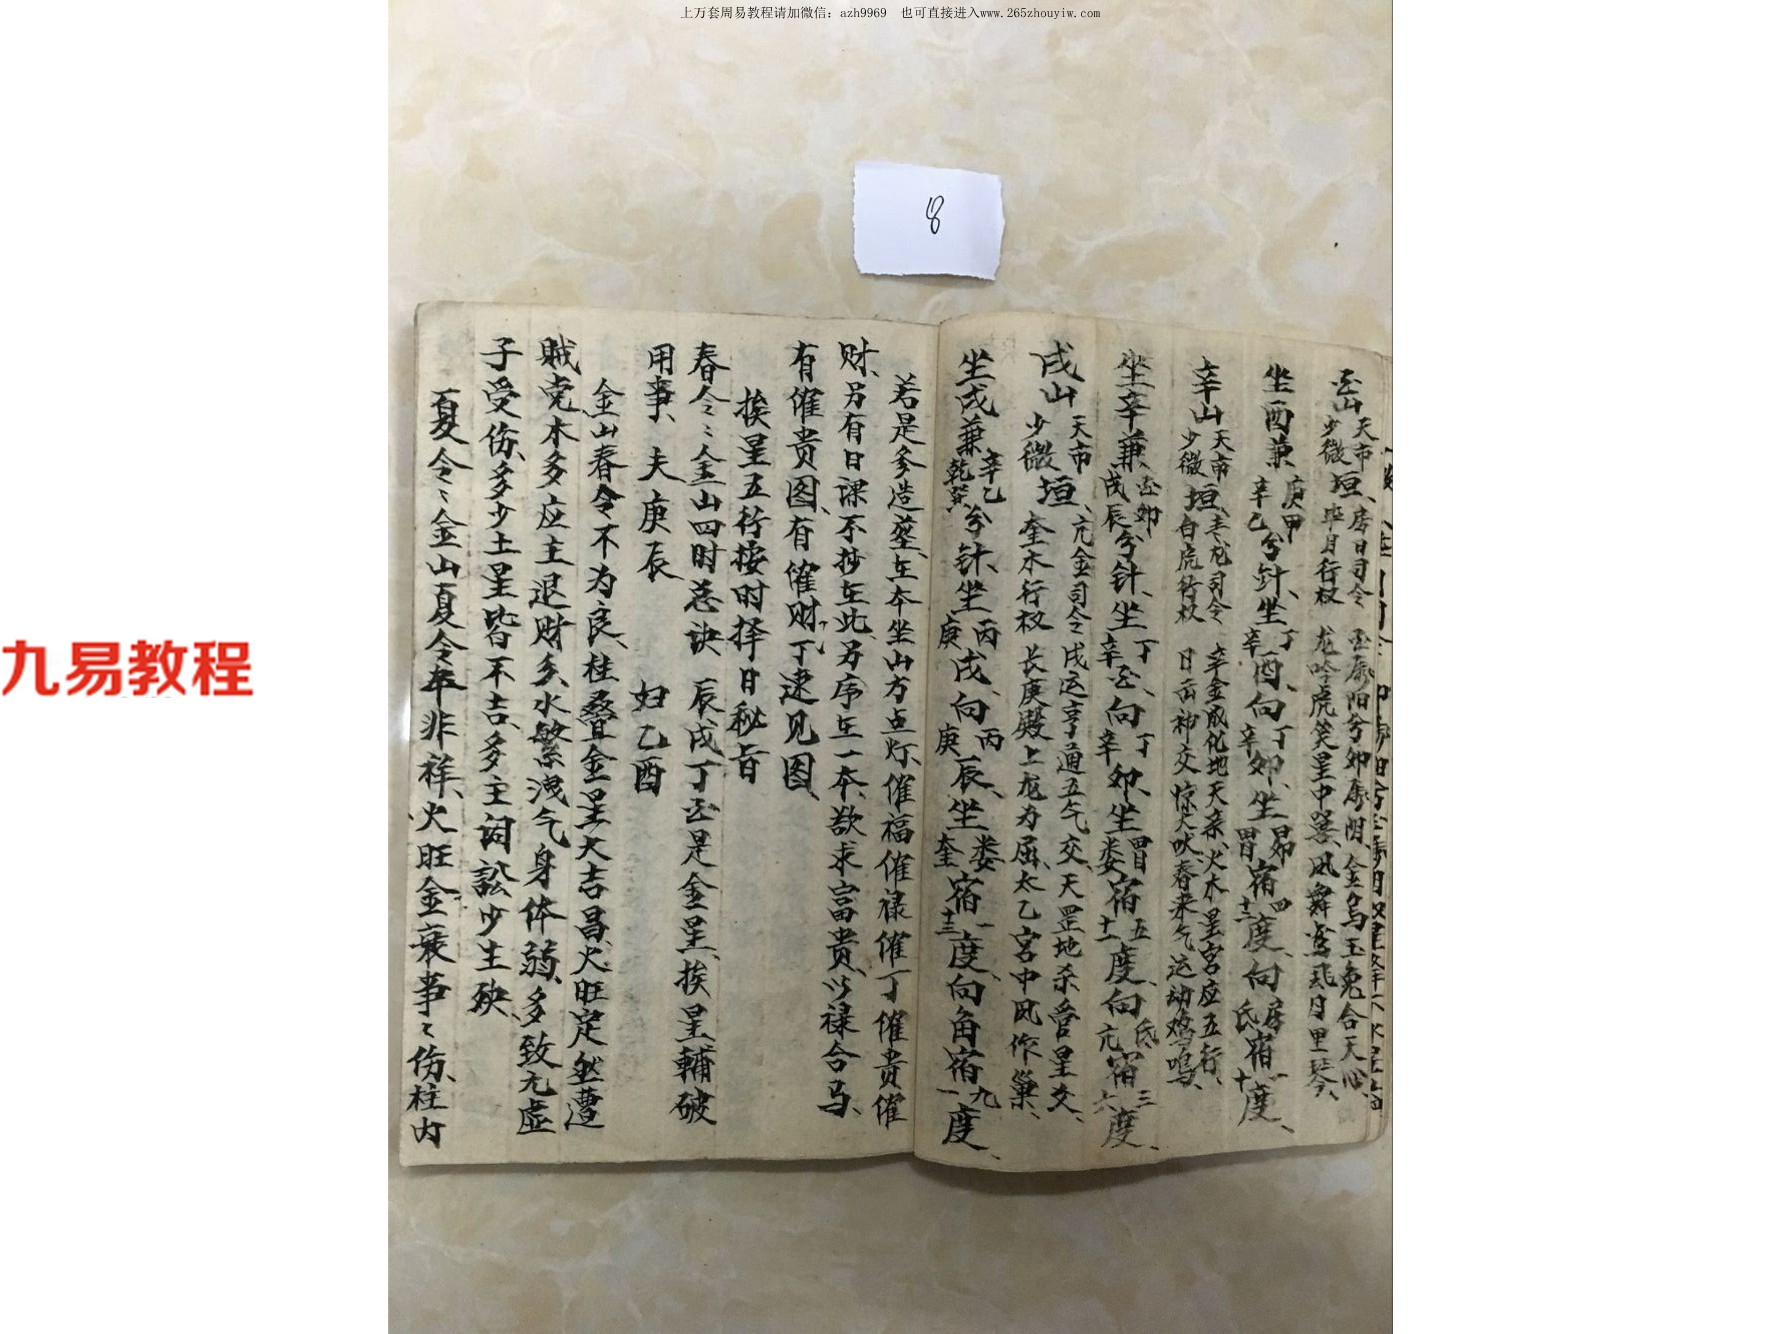 上万套周易教程请加微信：azh9969 也可直接进入www.265zhouyiw.com
8
九易教程
山天市少微垣、房日司令毕月行权
坐酉兼庚甲辛乙分针、坐丁辛酉、向丁辛卯、坐昴胃宿四十三度、向房氐宿一十度、
辛山天市少微垣、青龙司令白虎行权 辛金成化地天亲、火木星宫应五行、日西神交惊犬吠、春来气运动鸡鸣、
坐辛兼酉卯戌辰分针、坐丁辛酉、向丁辛卯、坐胃娄宿五十一度、向氐亢宿三六度、
戌山天市少微垣、亢金司令奎木行权 戌运亨通五气交、天罡地杀管星爻、长庚殿上龙为屈、太乙宫中凤作巢、
坐戌兼辛乙乾巽分针、坐丙庚戌、向丙庚辰、坐娄奎宿一十三度、向角宿九一度、
若是修造葬、在本坐山方点灯、催福催禄催丁催贵催
财、另有日课不抄在此、另序在一本、欲求富贵、以禄合马、
有催贵图、有催财、丁逮见图、
挨星五行接时择日秘旨
春令〻金山四时总诀 辰戌丁酉是金星、挨星輔破
用事、夫庚辰 妇乙酉
金山春令不为良、柱叠金星大吉昌、火旺定然遭
贼克木多应主退财多、水繁洩气身体弱、多致元虚
子受伤、多少土星皆不吉、多主闭訟少主殃、
夏令〻金山夏令年非祥、火旺金衰事〻伤、柱内